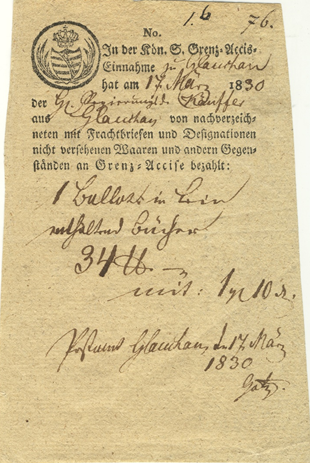 No. 1.6 76.
In der Kön. S. Grenz-Accis-
Einnahme zu Glauchau
hat am 17. März 1830
der Hr.
aus Glauchau von nachverzeich-
neten mit Frachtbriefen und Designationen
nicht versehenen Waaren und andern Gegen-
ständen an Grenz-Accise bezahlt:
1 Ballot in Lein
enthaltend Bücher
34 ℔. —
mit: 1 10
Postamt Glauchau, d 17. März
1830